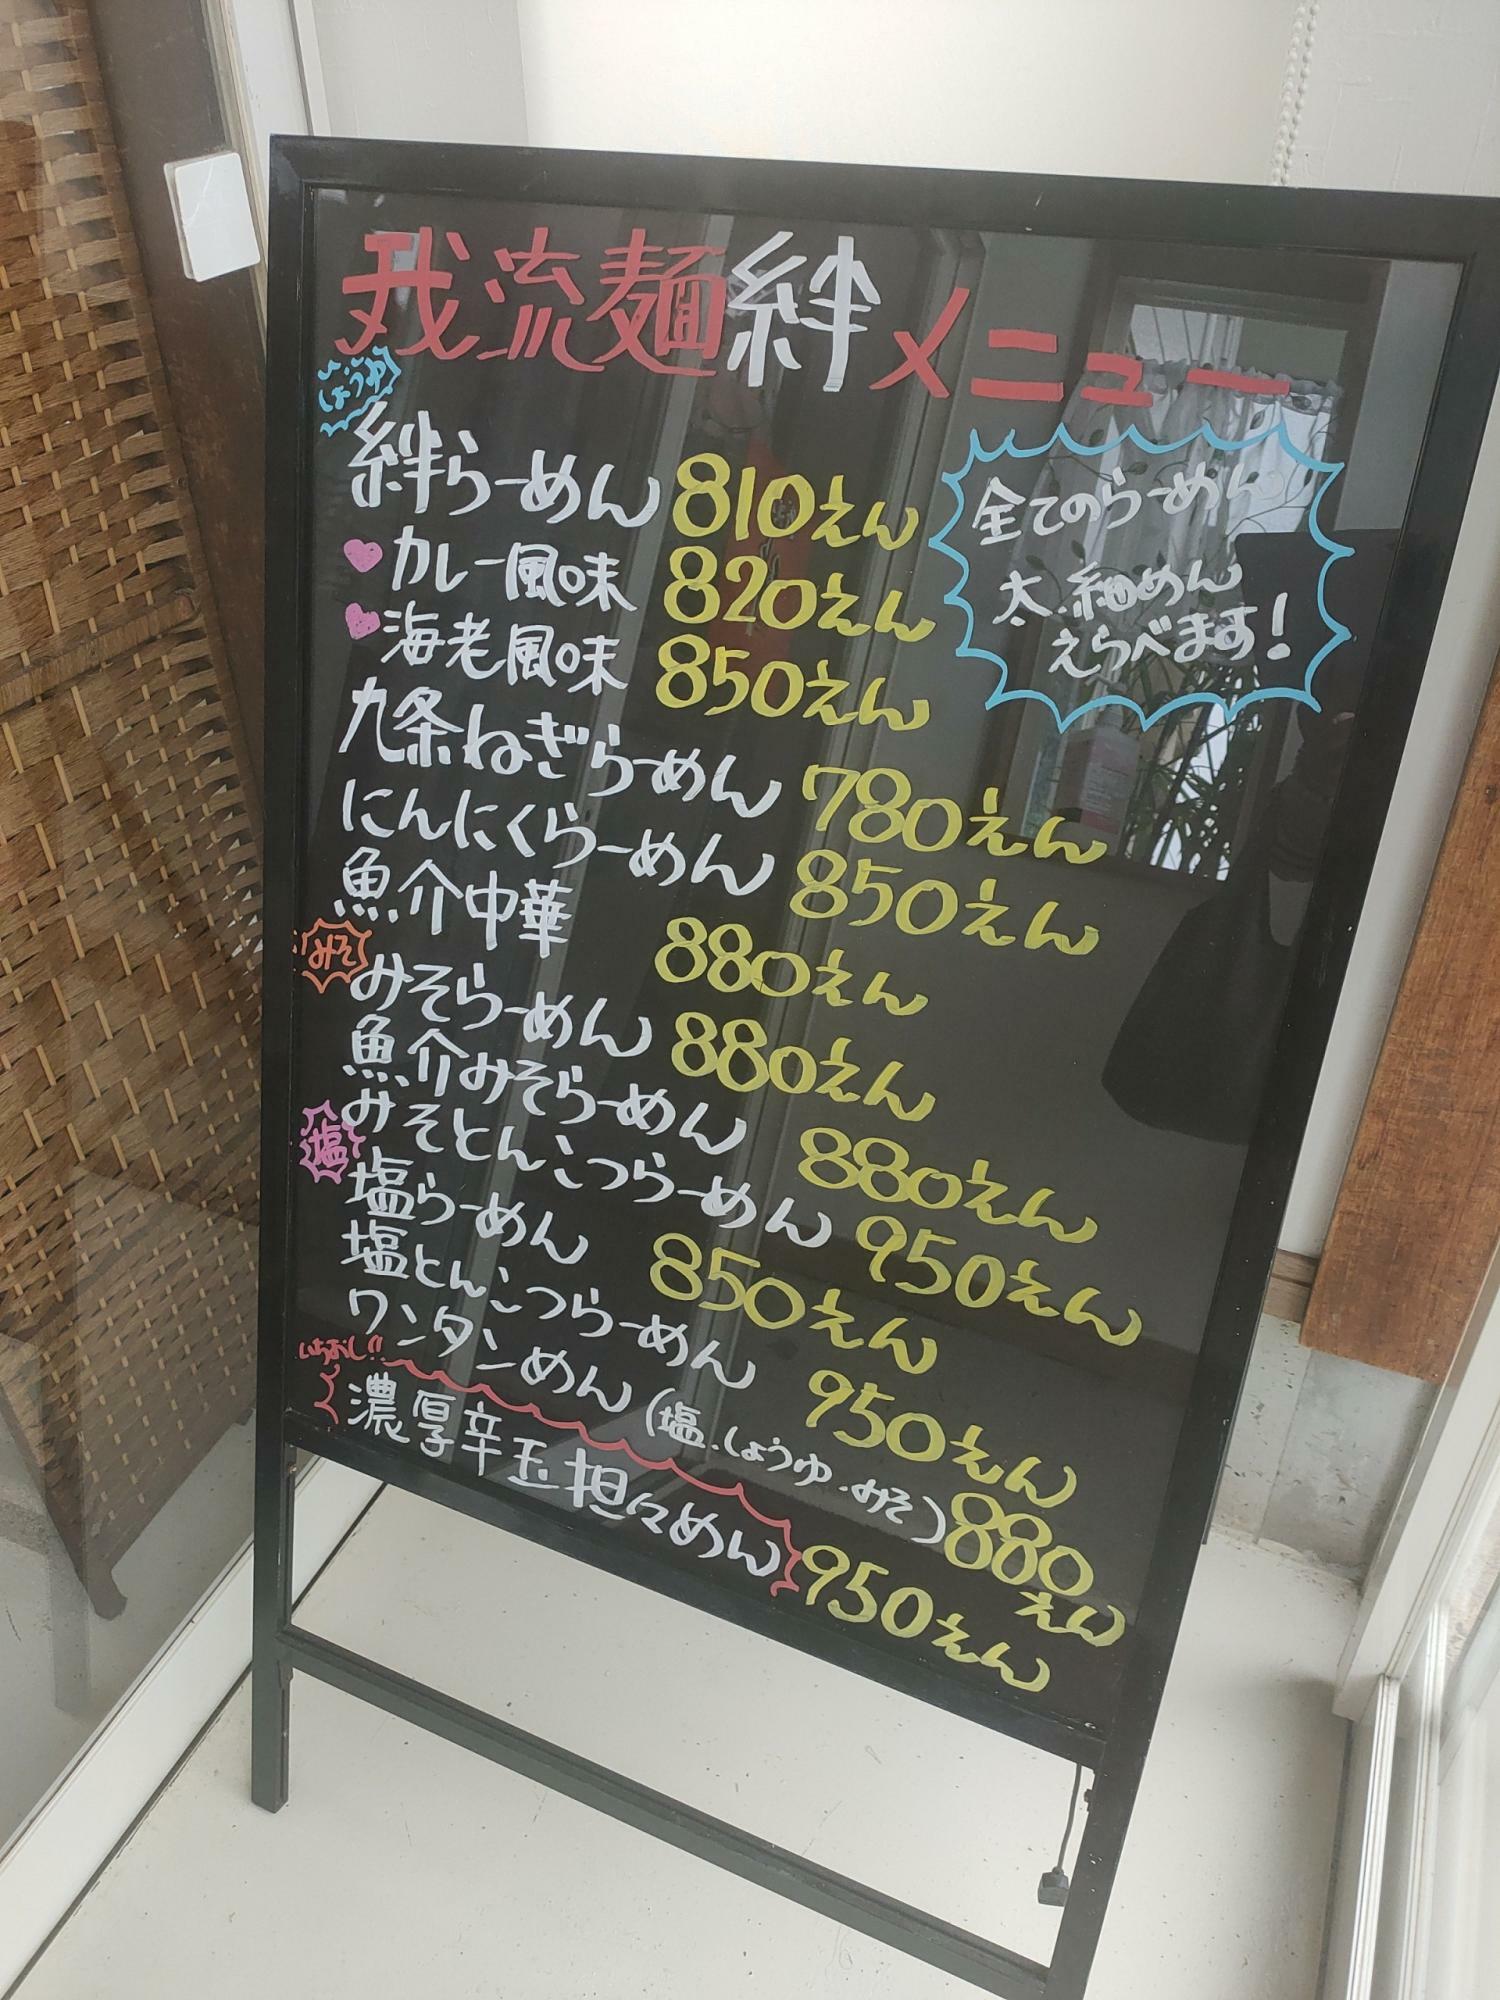 我流麺絆メニュー
しょうゆ
絆らーめん 810えん
カレー風味 820えん
海老風味 850えん
全てのらーめん
太、細めん
えらべます!
九条ねぎらーめん 780えん
にんにくらーめん 850えん
魚介中華 880えん
みそ
みそらーめん 880えん
魚介みそらーめん 880えん
みそとんこつらーめん 950えん
塩
塩らーめん 850えん
塩とんこつらーめん 950えん
ワンタンめん(塩.しょうゆ.みそ)880えん
いちおし!!
濃厚辛玉担々めん 950えん